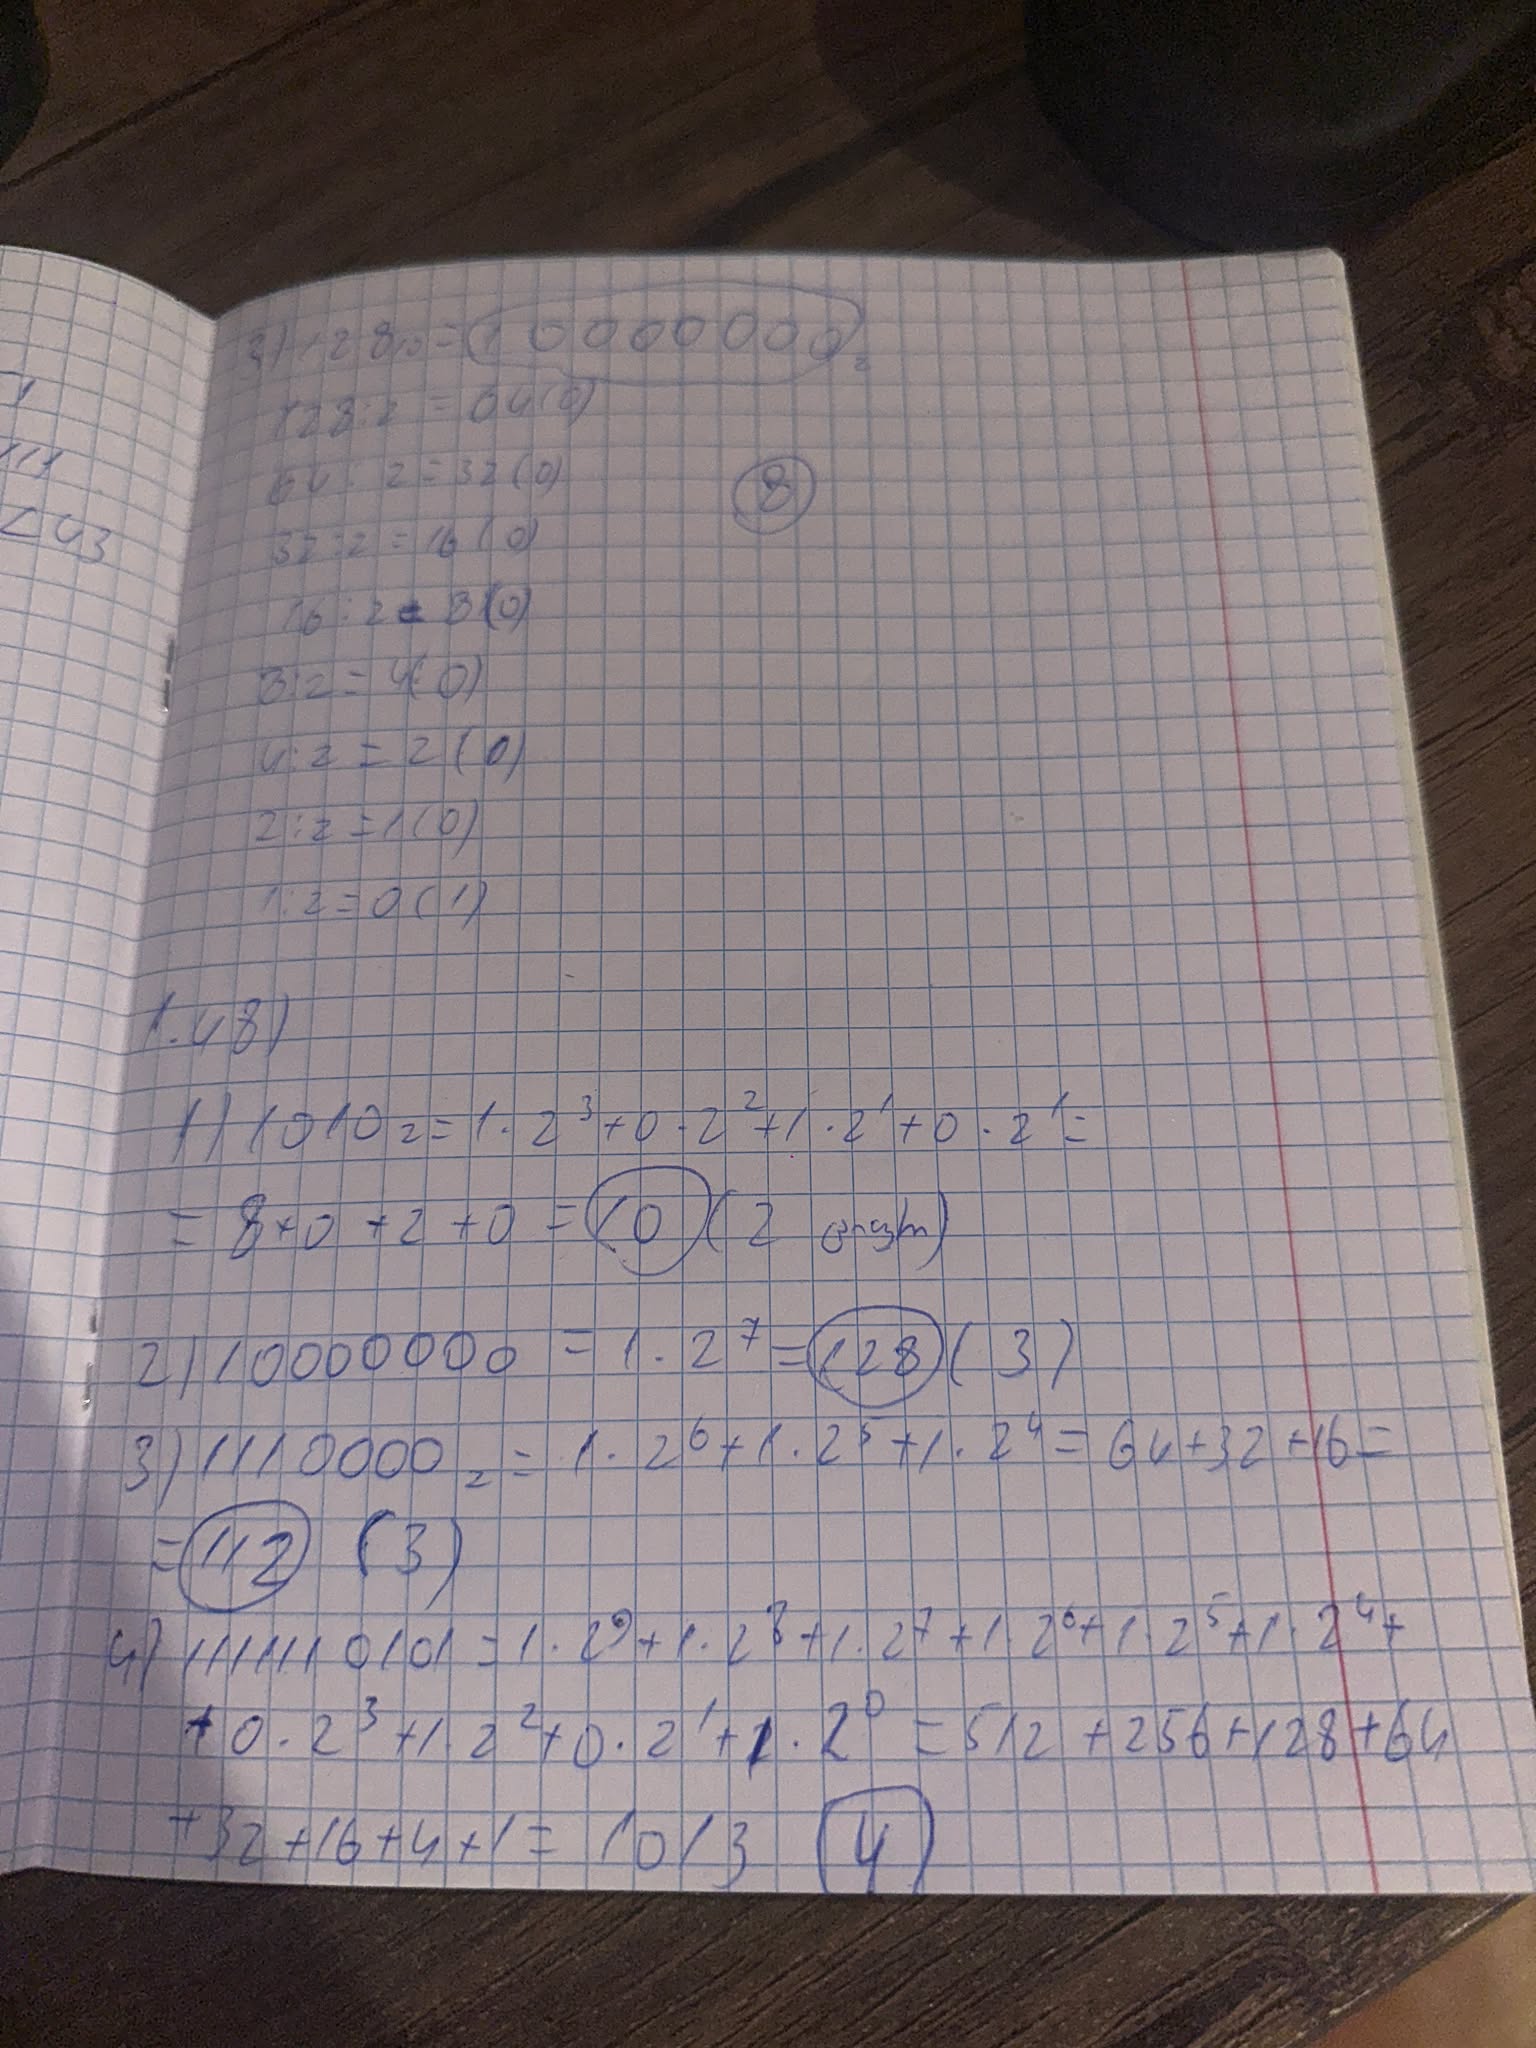 111
< 43
3) 128₁₀ = 10000000₂
128 : 2 = 64 (0)
64 : 2 = 32 (0)
8
32 : 2 = 16 (0)
16 : 2 = 8 (0)
8 : 2 = 4 (0)
4 : 2 = 2 (0)
2 : 2 = 1 (0)
1 : 2 = 0 (1)
1.48)
1) 1010₂ = 1 · 2³ + 0 · 2² + 1 · 2¹ + 0 · 2¹ =
= 8 + 0 + 2 + 0 = 10 (2
2) 10000000 = 1 · 2⁷ = 128 (3)
3) 1110000₂ = 1 · 2⁶ + 1 · 2⁵ + 1 · 2⁴ = 64 + 32 + 16 =
= 112 (3)
4) 1111110101 = 1 · 2⁹ + 1 · 2⁸ + 1 · 2⁷ + 1 · 2⁶ + 1 · 2⁵ + 1 · 2⁴ +
+ 0 · 2³ + 1 · 2² + 0 · 2¹ + 1 · 2⁰ = 512 + 256 + 128 + 64
+ 32 + 16 + 4 + 1 = 1013 (4)